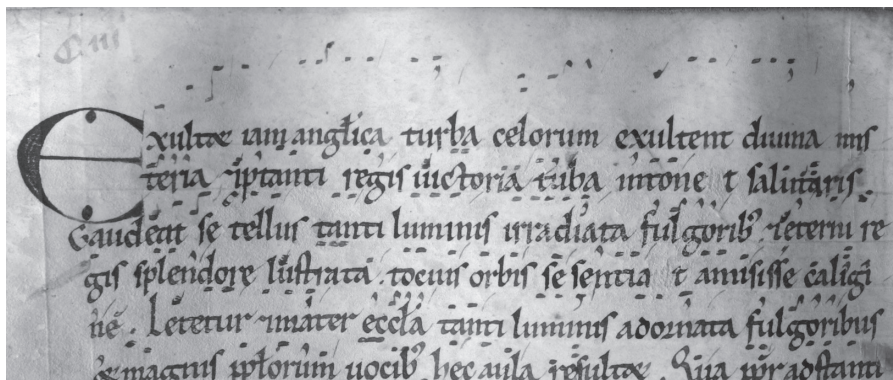 C. III
Exultæ iam anglica turba celorum exultent diuina mis
teria & ꝓ tanti regis uictoria tuba intone t salutaris.
Gaudeat se tellus tanti luminis irradiata fulgorib; & eterni re
gis splendore lustrata. tocius orbis se sentia t amisisse caligi
ne. Letetur & mater eccl̄a tanti luminis adornata fulgoribus
& magnis pp̄lorum uocib; hec aula resultæ. Qua ꝓpr adstanti